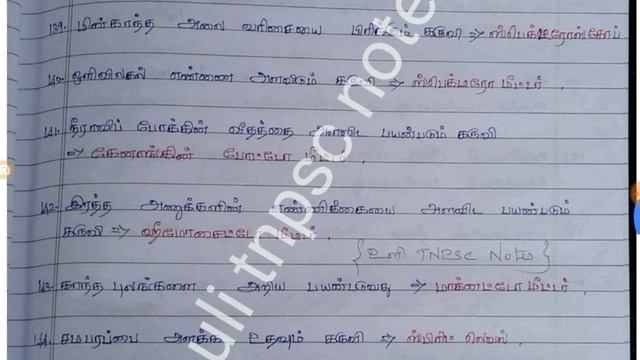 139. மின்காந்த அலை வரிசையை பிரிக்கும் கருவி => ஸ்பெக்டிரோஸ்கோப்
140. ஒளிவிலகல் எண்ணை அளவிடும் கருவி => ஸ்பெக்மரோ மீட்டர்.
141. நீராவிப் போக்கின் வீதத்தை அளவிட பயன்படும் கருவி
=> கேனாங்கின் போட்டோ மீட்டர்.
142. இரத்த அணுக்களின் எண்ணிக்கையை அளவிட பயன்படும்
கருவி => ஹீமோசைட்டோ மீட்டர்.
{உளி TNPSC Notes}
143. காந்த புலங்களை அறிய பயன்படுவது => மாக்னடோ மீட்டர்.
144. சமபரப்பை அளக்க உதவும் கருவி => ஸ்பிரிட் லெவல்.
uli tnpsc note